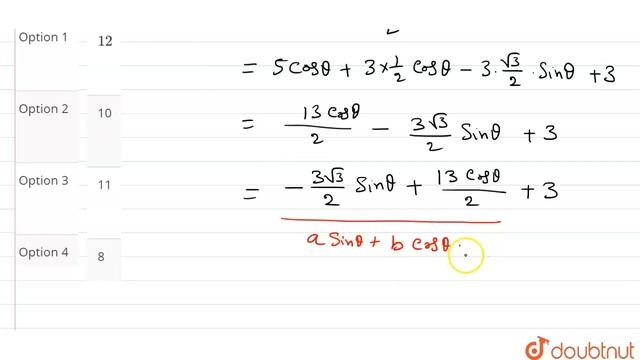 Option 1 12
Option 2 10
Option 3 11
Option 4 8
= 5 Cosθ + 3 × 1/2 Cosθ − 3·√3/2 · Sinθ + 3
= 13 Cosθ/2 − 3√3/2 Sinθ + 3
= − 3√3/2 Sinθ + 13 Cosθ/2 + 3
a Sinθ + b Cosθ
doubtnut